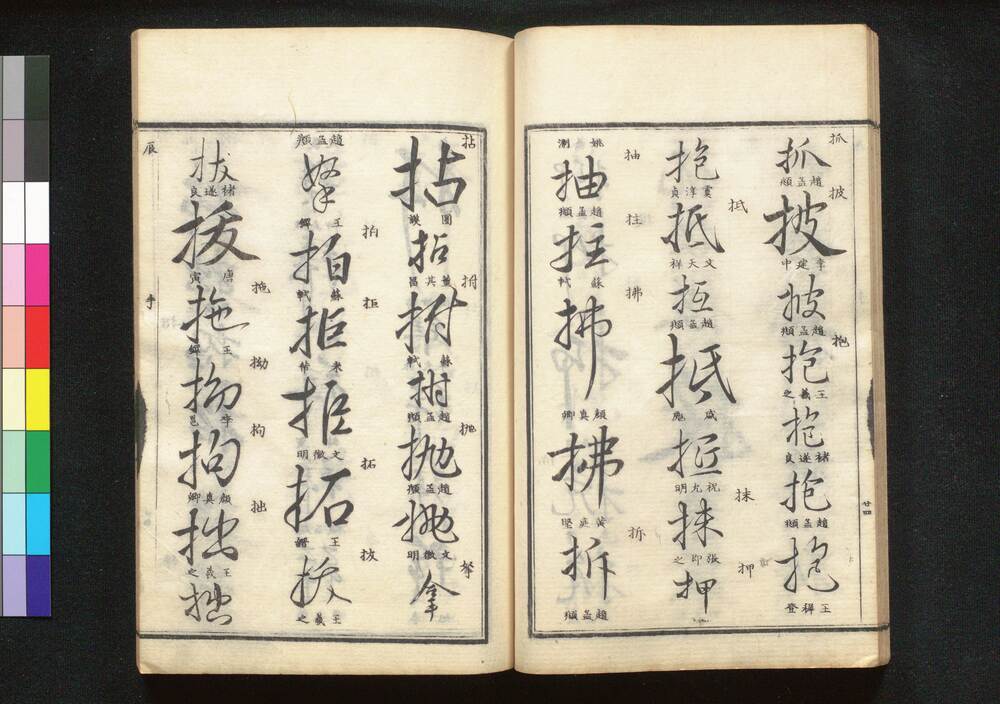 抓 披 抱
抓
趙孟頫
披
李建中
披
趙孟頫
抱
王羲之
抱
褚遂良
抱
趙孟頫
抱
王穉登
抵 抹 押
抱
抵
文天祥
抵
趙孟頫
抵
抵
祝允明
抹
張即之
押
抽 拄 拂 拆
姚
抽
趙孟頫
拄
蘇軾
拂
顏真卿
拂
黃庭堅
拆
趙孟頫
廿四
拈 拊 拋 拏
拈
拈
董其昌
拊
蘇軾
拊
趙孟頫
拋
趙孟頫
拋
文徵明
拏
拍 拒 拓 拔
趙孟頫
拏
王鐸
拍
蘇軾
拒
米芾
拒
文徵明
拓
王鐸
拔
王羲之
拖 拗 拘 拙
拔
褚遂良
拔
唐寅
拖
王鐸
拗
李邕
拘
顏真卿
拙
王羲之
拙
辰 手